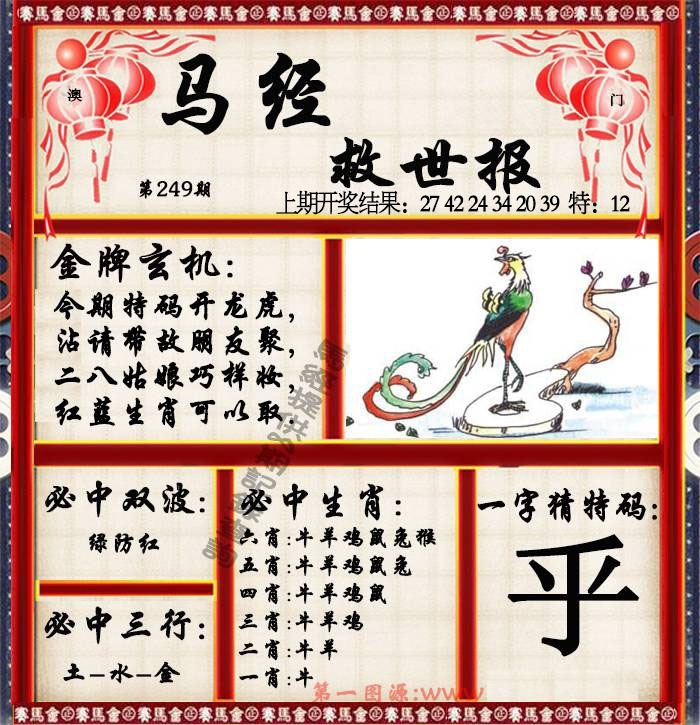 正賽馬會正賽馬會正賽馬會正賽馬會正賽馬會正賽馬會
澳
门
马经
救世报
第249期
上期开奖结果：27 42 24 34 20 39 特：12
金牌玄机：
今期特码开龙虎，
沾请带故朋友聚，
二八姑娘巧样妆，
红蓝生肖可以取.
必中双波：
绿防红
必中三行：
土-水-金
必中生肖：
六肖:牛羊鸡鼠兔猴
五肖:牛羊鸡鼠兔
四肖:牛羊鸡鼠
三肖:牛羊鸡
二肖:牛羊
一肖:牛
一字猜特码：
乎
第一图源:www